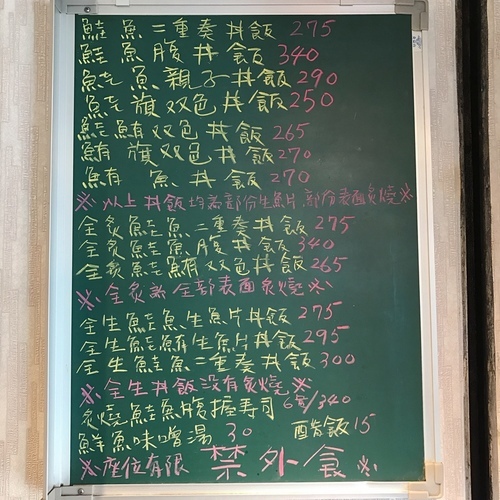 鮭魚二重奏丼飯 275
鮭魚腹丼飯 340
鮭魚親子丼飯 290
鮭旗双色丼飯 250
鮭鮪双色丼飯 265
鮪旗双色丼飯 270
鮪魚丼飯 270
※以上丼飯均為部份生魚片,部份表面炙燒※
全炙鮭魚二重奏丼飯 275
全炙鮭魚腹丼飯 340
全炙鮭鮪双色丼飯 265
※全炙為全部表面炙燒※
全生鮭魚生魚片丼飯 275
全生鮭鮪生魚片丼飯 295
全生鮭魚二重奏丼飯 300
※全生丼飯沒有炙燒※
炙燒鮭魚腹握壽司 6貫/340
鮮魚味噌湯 30 醋飯 15
※座位有限 禁外食※